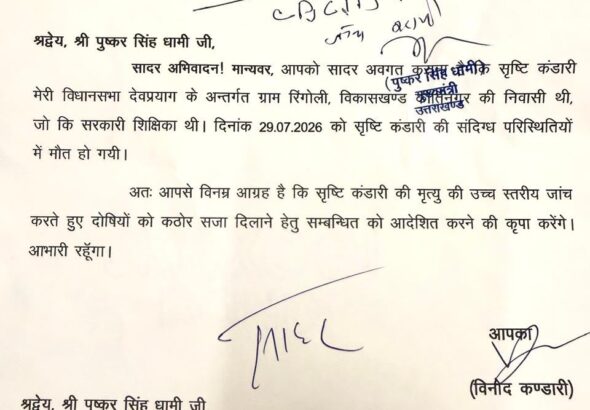 CBCID
जाँच कराएं
श्रद्धेय, श्री पुष्कर सिंह धामी जी,
सादर अभिवादन! मान्यवर, आपको सादर अवगत कराना है कि सृष्टि कंडारी
(पुष्कर सिंह धामी)
मेरी विधानसभा देवप्रयाग के अन्तर्गत ग्राम रिंगोली, विकासखण्ड कीर्तिनगर की निवासी थी,
मुख्यमंत्री
उत्तराखण्ड
जो कि सरकारी शिक्षिका थी। दिनांक 29.07.2026 को सृष्टि कंडारी की संदिग्ध परिस्थितियों
में मौत हो गयी।
अतः आपसे विनम्र आग्रह है कि सृष्टि कंडारी की मृत्यु की उच्च स्तरीय जांच
करते हुए दोषियों को कठोर सजा दिलाने हेतु सम्बन्धित को आदेशित करने की कृपा करेंगे।
आभारी रहूँगा।
सादर
आपका
(विनोद कण्डारी)
श्रद्वेय, श्री पुष्कर सिंह धामी जी